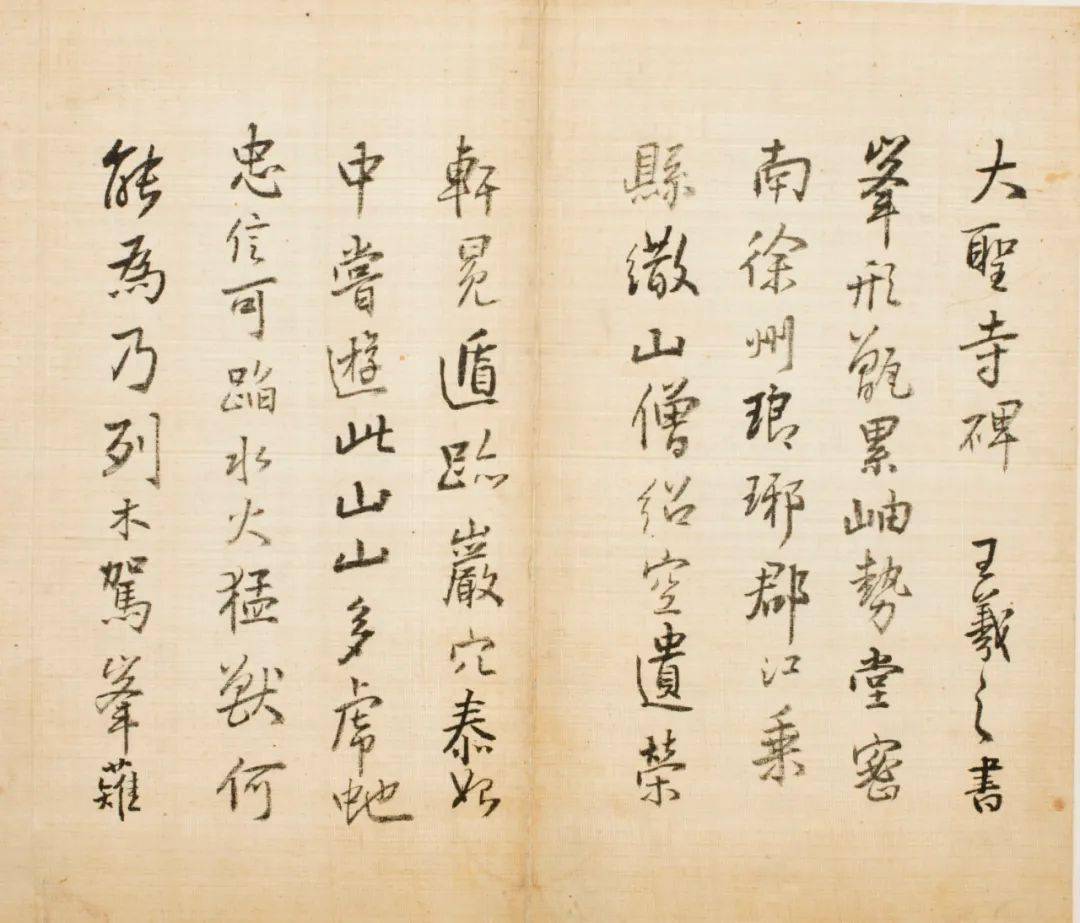 大聖寺碑 王羲之書
峯形甑累岫勢堂密
南徐州瑯琊郡江乗
縣繖山僧紹空遺榮
軒冕遁跡巖穴泰始
中嘗遊此山山多虎虵
忠信可蹈水火猛獣何
能為乃列木駕峯薙